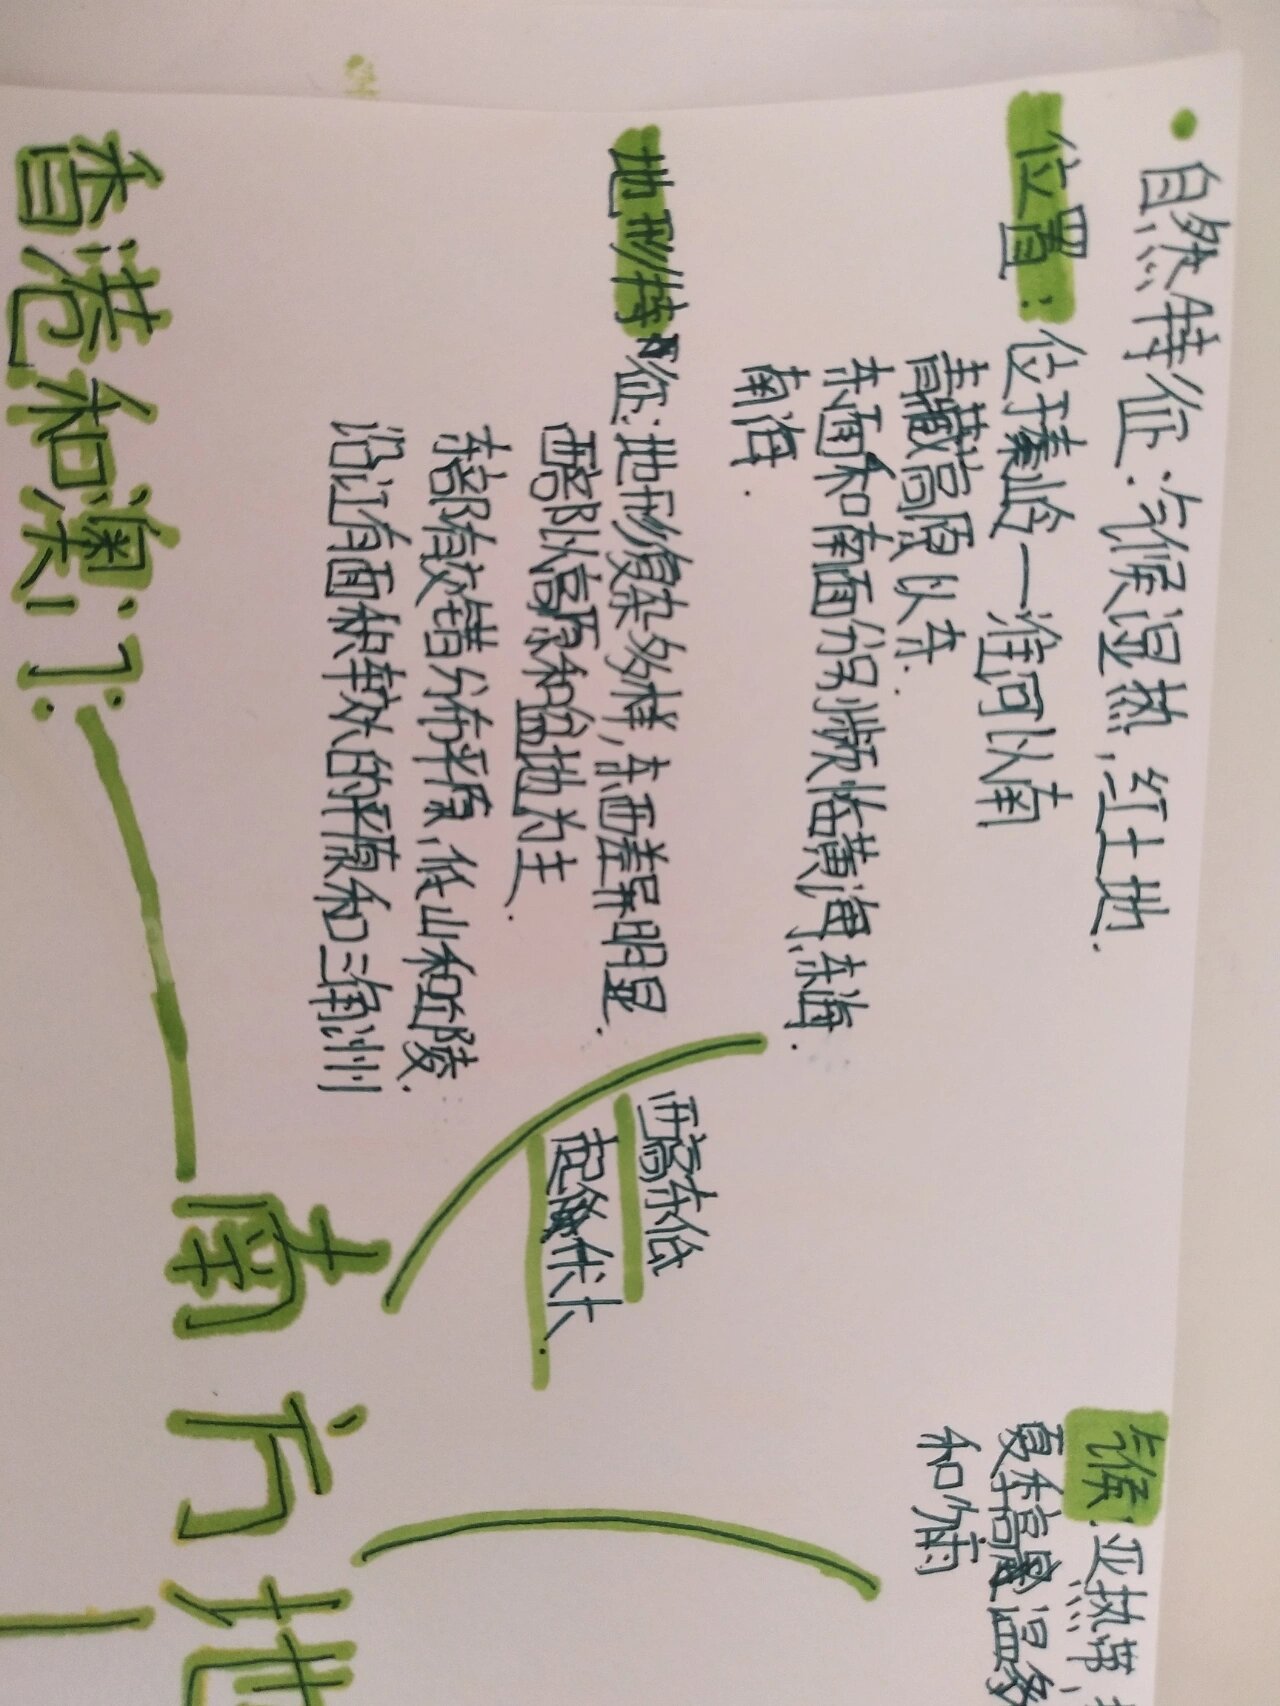 ·自然特征:气候湿热,红土地.
位置:位于秦岭一淮河以南
青藏高原以东.
东面和南面分别濒临黄海、东海.
南海.
地形特征:地形复杂多样,东西差异明显.
西部以高原和盆地为主.
东部有交错分布平原,低山和丘陵.
沿江有面积较的平原和三角洲
西高东低
起伏大.
气候:亚热带
夏季高温多
和少雨
香港和澳门:
南方地